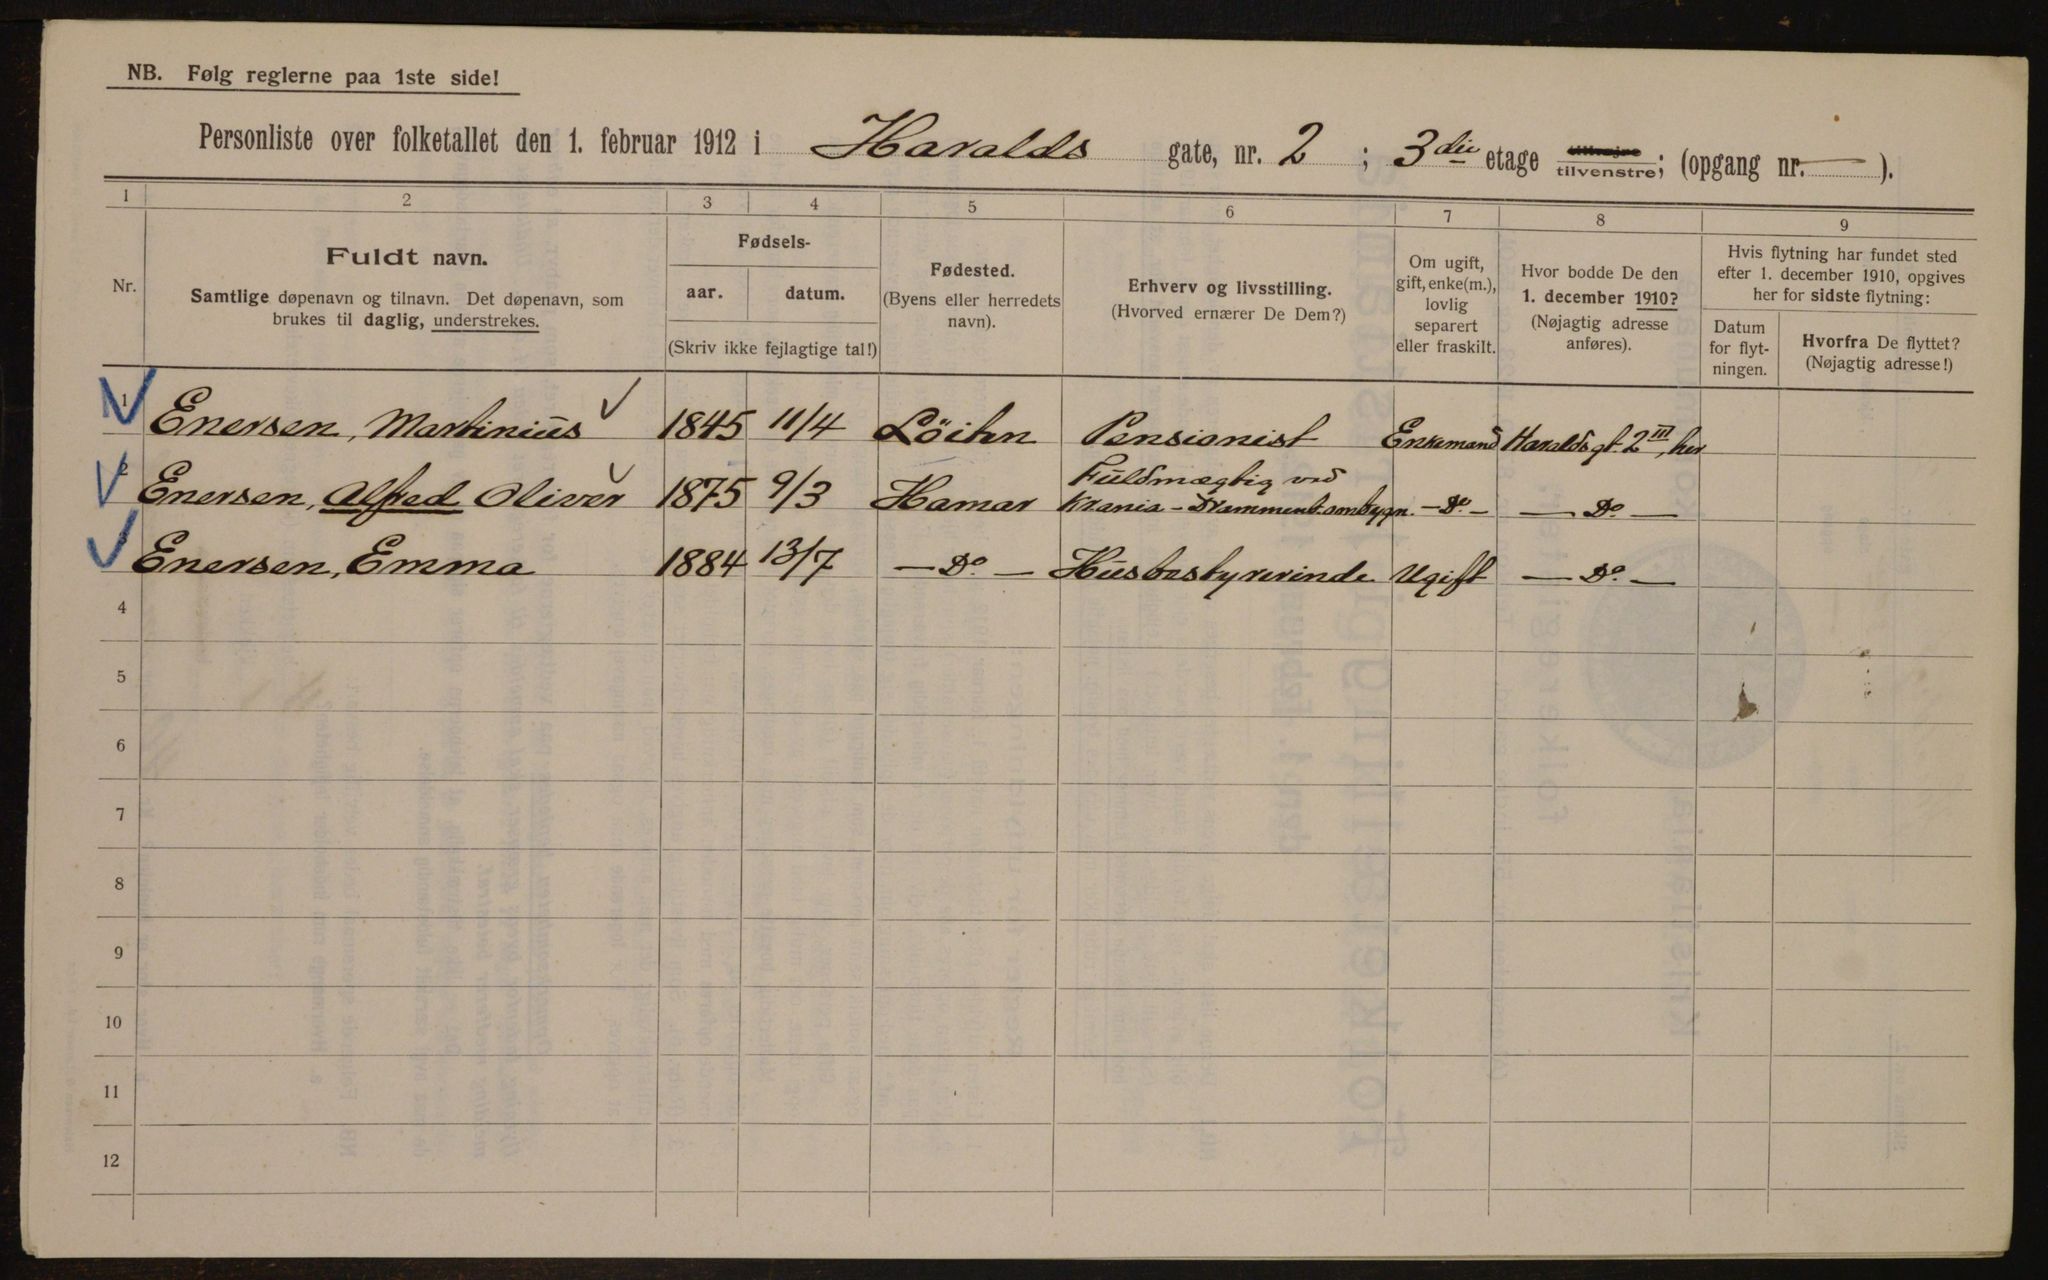 NB. Følg reglerne paa 1ste side!
Personliste over folketallet den 1. februar 1912 i Haralds gate, nr. 2 ; 3die etage tilhøjre tilvenstre; (opgang nr. — ).
1 2 3 4 5 6 7 8 9
Nr.
Fuldt navn.
Samtlige døpenavn og tilnavn. Det døpenavn, som
brukes til daglig, understrekes.
Fødsels-
aar. datum.
(Skriv ikke fejlagtige tal!)
Fødested.
(Byens eller herredets
navn).
Erhverv og livsstilling.
(Hvorved ernærer De Dem?)
Om ugift,
gift, enke(m.),
lovlig
separert
eller fraskilt.
Hvor bodde De den
1. december 1910?
(Nøjagtig adresse
anføres).
Hvis flytning har fundet sted
efter 1. december 1910, opgives
her for sidste flytning:
Datum
for flyt-
ningen.
Hvorfra De flyttet?
(Nøjagtig adresse!)
1 Enersen, Martinius 1845 11/4 Löiten Pensionist Enkemand Haraldsgt. 2 III, her
2 Enersen, Alfred Oliver 1875 9/3 Hamar Fuldmægtig ved
Krania - Dramment. ombygn. — Do. — — Do. —
Enersen, Emma 1884 13/7 — Do. — Husbestyrerinde Ugift — Do. —
4
5
6
7
8
9
10
11
12